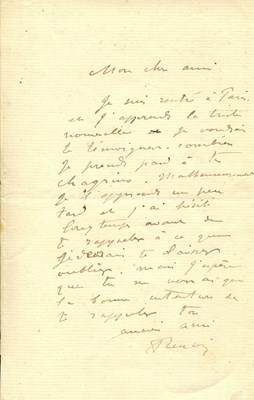 Mon cher ami
Je suis rentré à Paris
et j'apprends la triste
nouvelle et je voudrais
te témoigner combien
je prends part à ton
chagrin. Malheureusement
je l'apprends un peu
tard et j'ai hésité
longtemps avant de
te rappeler à ce que
je devrais te laisser
oublier. mais j'espère
que tu ne verras que
la bonne intention de
te rappeler ton
ancien ami
Renoir